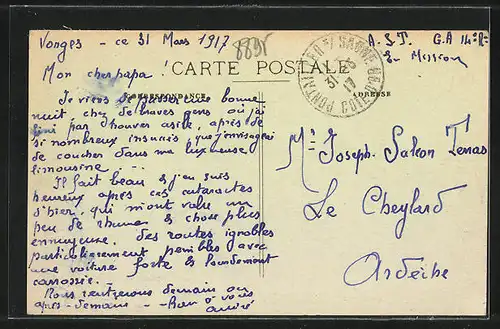 Vonges - ce 31 Mars 1917
8895
A.S.T. G.A 14e R.
En Mission
Mon cher papa!
CARTE POSTALE
CORRESPONDANCE
ADRESSE
PONTAILLER S/ SAONE
31
17
COTE D'OR
Je viens de passer une bonne
nuit chez de braves gens où j'ai
fini par trouver asile, après de
si nombreux insuccès que j'envisageai
de coucher dans ma luxueuse
limousine ....
Il fait beau & j'en suis
heureux après ces cataractes
d'hier, qui m'ont valu un
peu de rhume & chose plus
ennuyeuse, des routes ignobles
particulièrement pénibles avec
une voiture forte & lourdement
carrossée.-
Nous rentrerons demain ou
après-demain - Bien à vous
André
Mr Joseph-Saleon Terras
Le Cheylard
Ardèche